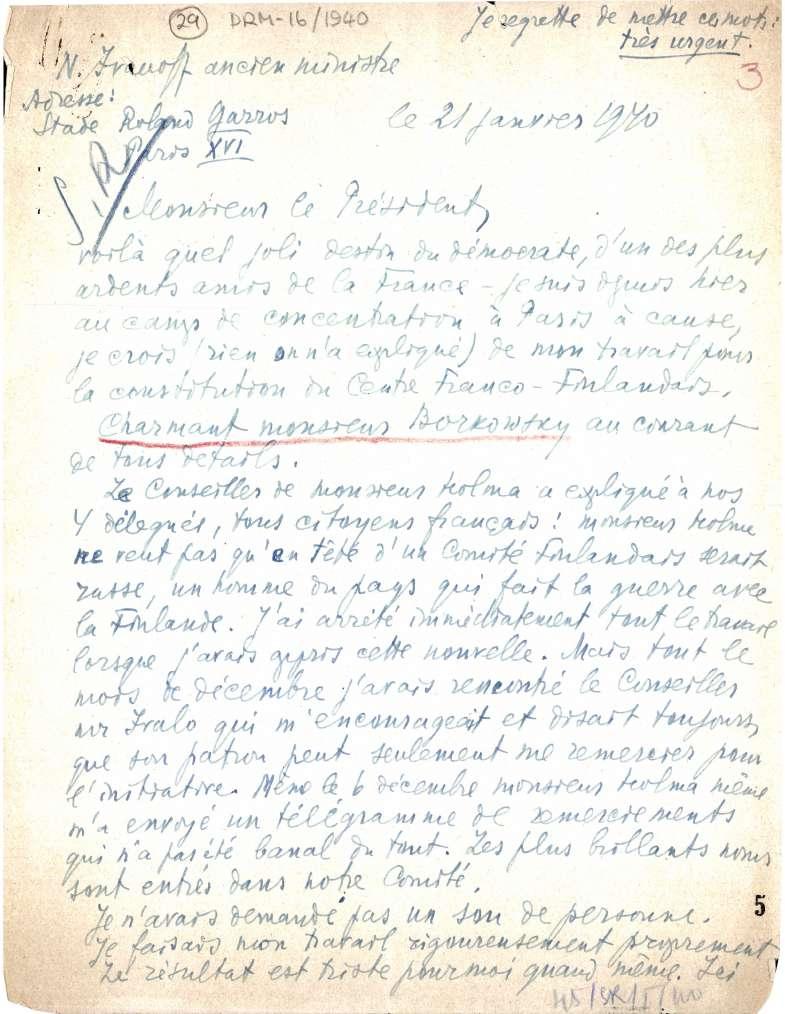 29 DRM-16/1940
Je regrette de mettre ces mots:
très urgent.
3
N. Ivanoff ancien ministre
Adresse:
Stade Roland Garros
Paris XVI
le 21 janvier 1940
Monsieur le Président,
voilà quel joli destin du démocrate, d'un des plus
ardents amis de la France – je suis depuis hier
au camp de concentration à Paris à cause,
je crois (rien on n'a expliqué) de mon travail pour
la constitution du Centre Franco-Finlandais.
Charmant monsieur Borkowsky au courant
de tous details.
Le Conseiller de monsieur Holma a expliqué à nos
4 délegués, tous citoyens français: monsieur Holma
ne veut pas qu'en tête d'un Comité Finlandais serait
russe, un homme du pays qui fait la guerre avec
la Finlande. J'ai arrêté immédiatement tout le travail
lorsque j'avais appris cette nouvelle. Mais tout le
mois de décembre j'avais rencontré le Conseiller
mr Ivalo qui m'encourageait et disait toujours
que son patron peut seulement me remercier pour
l'initiative. Même le 6 décembre monsieur Holma même
m'a envoyé un télégramme de remerciements
qui n'a pas été banal du tout. Les plus brillants noms
sont entrés dans notre Comité.
Je n'avais demandé pas un sou de personne.
Je faisais mon travail rigoureusement proprement
Le résultat est triste pour moi quand même. Ici
5